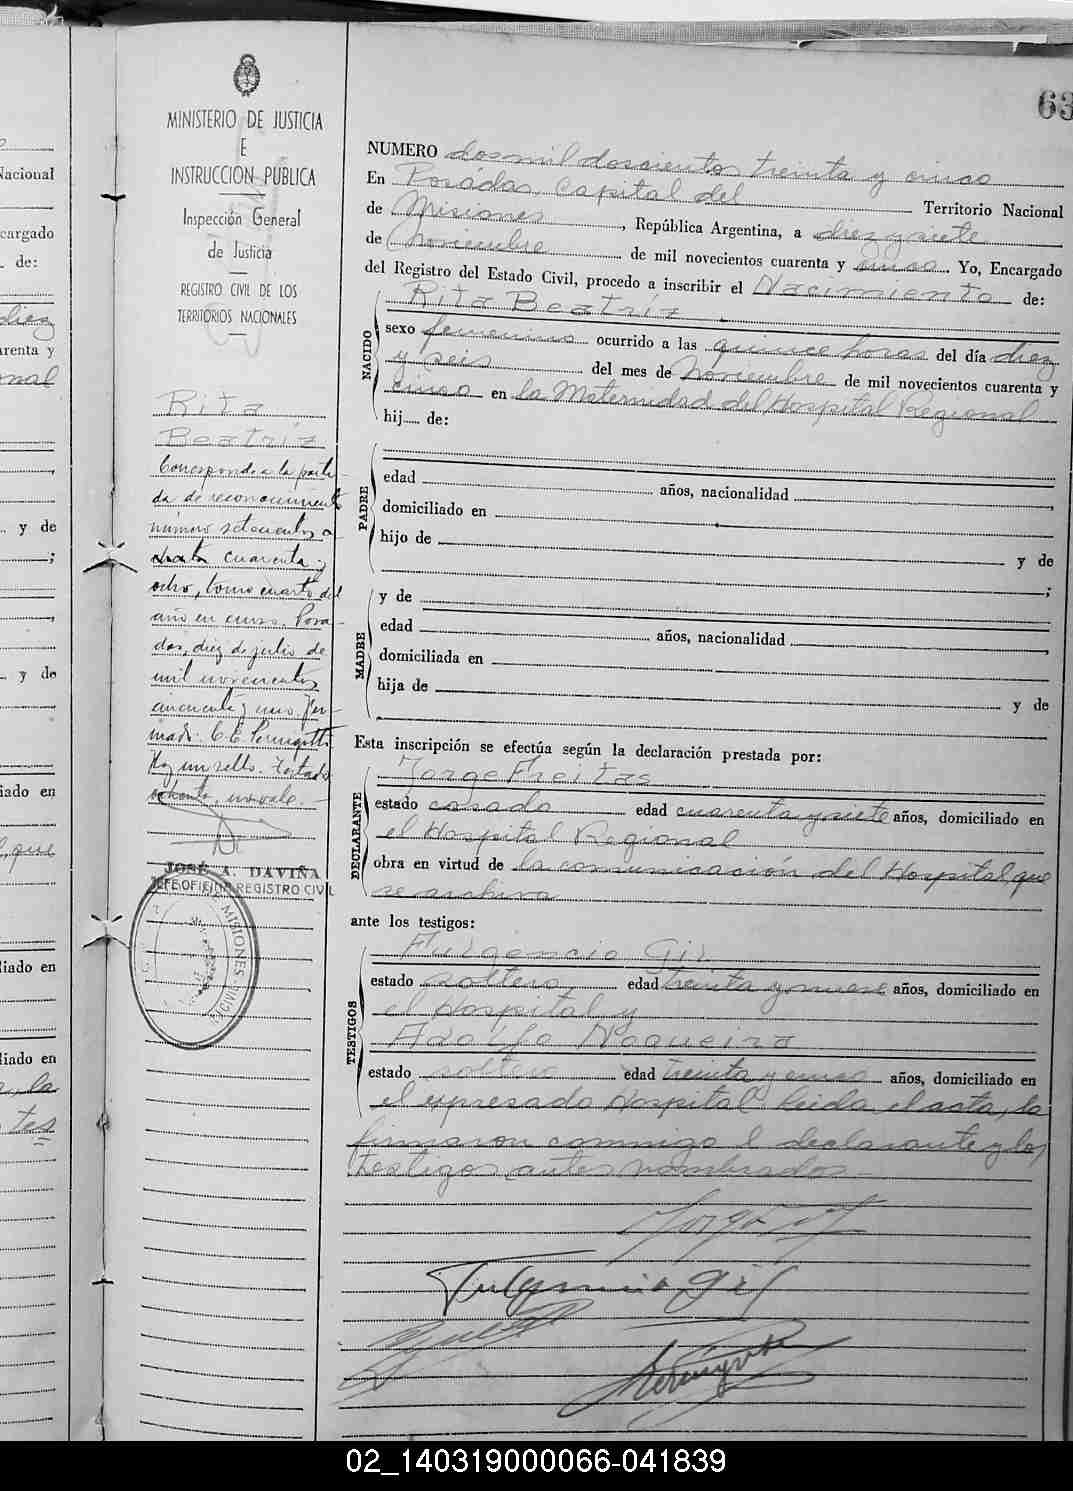 63
MINISTERIO DE JUSTICIA
E
INSTRUCCIÓN PÚBLICA
Inspección General
de Justicia
REGISTRO CIVIL DE LOS
TERRITORIOS NACIONALES
Rita
Beatriz
Corresponde a la parti-
da de reconocimiento
número setecientos o-
chenta cuarenta y
ocho, tomo cuarto del
año en curso. Posa-
das, diez de julio de
mil novecientos
cincuenta y uno. Fir-
mado: C. E.
Hay un sello. Testado
ochenta, no vale.
JOSÉ A. DAVIÑA
JEFE OFICINA REGISTRO CIVIL
MISIONES
NUMERO dosmil doscientos treinta y cinco
En Posadas, Capital del
de Misiones, República Argentina, a diez y siete
Territorio Nacional
de Noviembre de mil novecientos cuarenta y cinco. Yo, Encargado
del Registro del Estado Civil, procedo a inscribir el Nacimiento de:
NACIDO
Rita Beatríz.
sexo femenino ocurrido a las quince horas del día diez
y seis del mes de Noviembre de mil novecientos cuarenta y
cinco en la Maternidad del Hospital Regional
hij de:
PADRE
edad años, nacionalidad ,
domiciliado en
hijo de y de
;
MADRE
y de
edad años, nacionalidad ,
domiciliada en
hija de y de
Esta inscripción se efectúa según la declaración prestada por:
DECLARANTE
Jorge Freitas
estado casado edad cuarenta y siete años, domiciliado en
el Hospital Regional
obra en virtud de la comunicación del Hospital, que
se archiva
ante los testigos:
TESTIGOS
Fulgencio Gil
estado soltero, edad treinta y nueve años, domiciliado en
el Hospital y
Adolfo Nogueira
estado soltero edad treinta y cinco años, domiciliado en
el expresado Hospital. Leida el acta, la
firmaron conmigo el declarante y los
testigos antes nombrados.
Fulgencio Gil
Nacional
cargado
de:
diez
arenta y
onal
y de
;
y de
iado en
que
liado en
liado en
la
tes
02_140319000066-041839